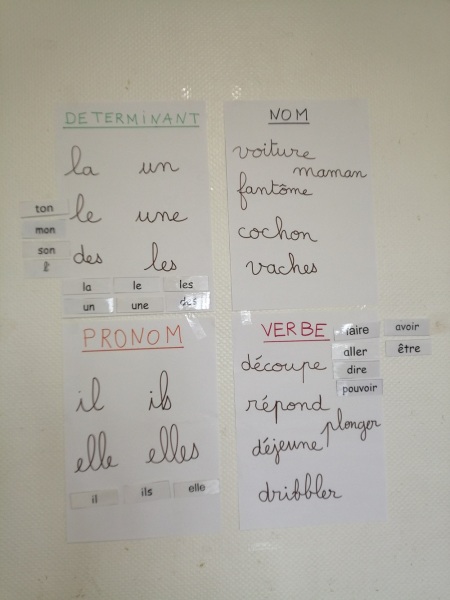 DETERMINANT
la un
le une
des les
ton
mon
son
la le les
un une des
NOM
voiture
maman
fantôme
cochon
vaches
PRONOM
il ils
elle elles
il ils elle
VERBE
découpe
répond
plonger
déjeune
dribbler
faire avoir
aller être
dire
pouvoir